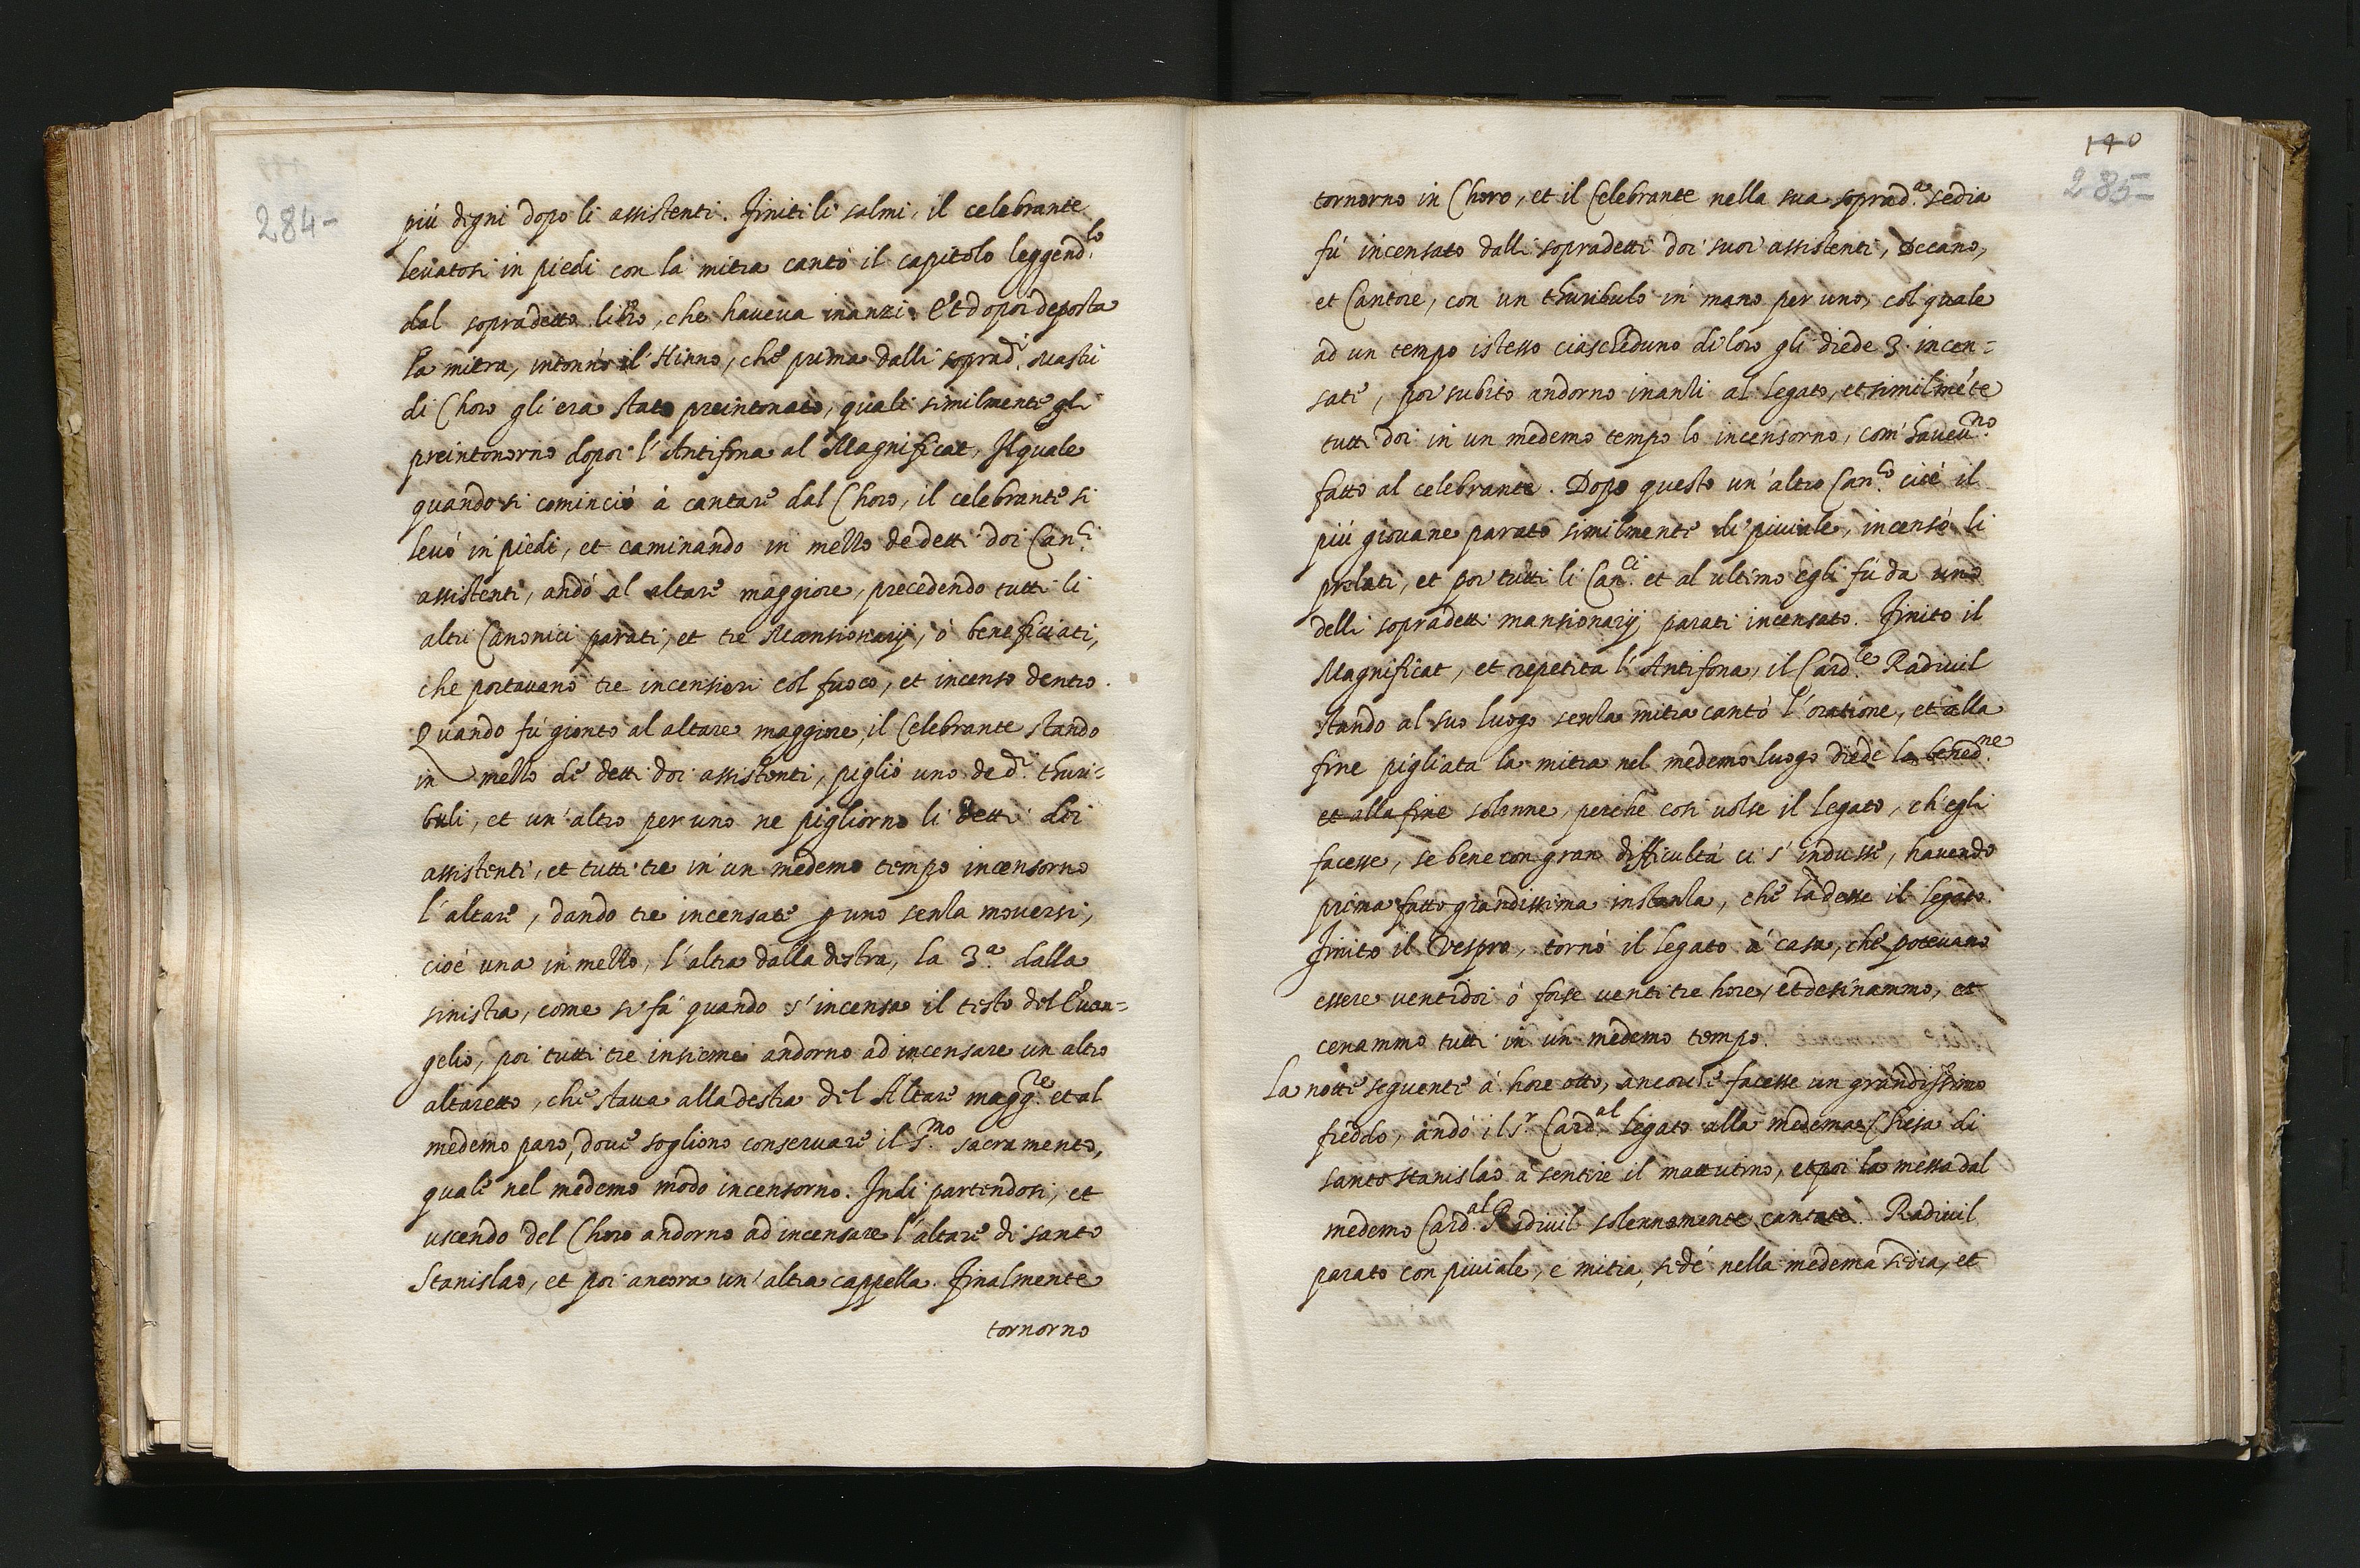 284-
più degni dopo li assistenti. Finiti li salmi, il celebrante
levatosi in piedi con la mitra cantò il capitolo leggend.lo
dal sopradetto libro, che haveva inanzi. Et dopoi deposta
la mitra, intonò il Hinno, che prima dalli soprad.i Mastri
di Choro gli era stato preintonato, quali similmente gli
preintonorno dopoi l'Antifona al Magnificat, Il quale
quando si cominciò à cantare dal Choro, il celebrante si
levò in piedi, et caminando in mezzo de detti doi Can.ci
assistenti, andò al altare maggiore, precedendo tutti li
altri Canonici parati, et tre Mansionarij, ò beneficiati,
che portavano tre incensieri col fuoco, et incenso dentro.
Quando fù gionto al altare maggiore, il Celebrante stando
in mezzo de detti doi assistenti, pigliò uno de d.i thuri=
buli, et un'altro per uno ne pigliorno li detti doi
assistenti, et tutti tre in un medemo tempo incensorno
l'altare, dando tre incensate p uno senza moversi,
cioè una in mezzo, l'altra dalla destra, la 3.a dalla
sinistra, come si fà quando s'incensa il testo del Evan=
gelio, poi tutti tre insieme andorno ad incensare un altro
altaretto, che stava alla destra del Altare magg.re et al
medemo paro, dove sogliono conservare il S.mo sacramento,
quale nel medemo modo incensorno. Indi partendosi, et
uscendo del Choro andorno ad incensare l'altare di santo
Stanislao, et poi ancora un'altra cappella. Finalmente
tornorno
140
285-
tornorno in Choro, et il Celebrante nella sua soprad.a sedia
fù incensato dalli sopradetti doi suoi assistenti, Decano,
et Cantore, con un thuribulo in mano per uno, col quale
ad un tempo istesso ciascheduno di loro gli diede 3 incen=
sate, poi subito andorno inanzi al legato, et similmẽte
tutti doi in un medemo tempo lo incensorno, com' havev.no
fatto al celebrante. Dopo questo un'altro Can.co cioè il
più giovane parato similmente di piviale, incensò li
prelati, et poi tutti li Can.ci et al ultimo egli fù da uno
delli sopradetti mansionarij parati incensato. Finito il
Magnificat, et repetita l'Antifona, il Card.le Radivil
stando al suo luogo senza mitra cantò l'oratione, et alla
fine pigliata la mitra nel medemo luogo diede la bened.ne
et alla fine solenne, perche così volse il legato, ch'egli
facesse, se bene con gran difficultà ci s'indusse, havendo
prima fatto grandissima instanza, che la desse il legato.
Finito il Vespro, tornò il legato à casa, che potevano
essere ventidoi ò forse ventitre hore, et desinammo, et
cenammo tutti in un medemo tempo.
La notte seguente à hore otto, ancorche facesse un grandissimo
freddo, andò il S.r Card.al legato alla medema Chiesa di
santo Stanislao à sentire il mattutino, et poi la messa dal
medemo Card.al Radivil solennemente cantate. Radivil
parato con piviale, e mitra, sedè nella medema sedia, et